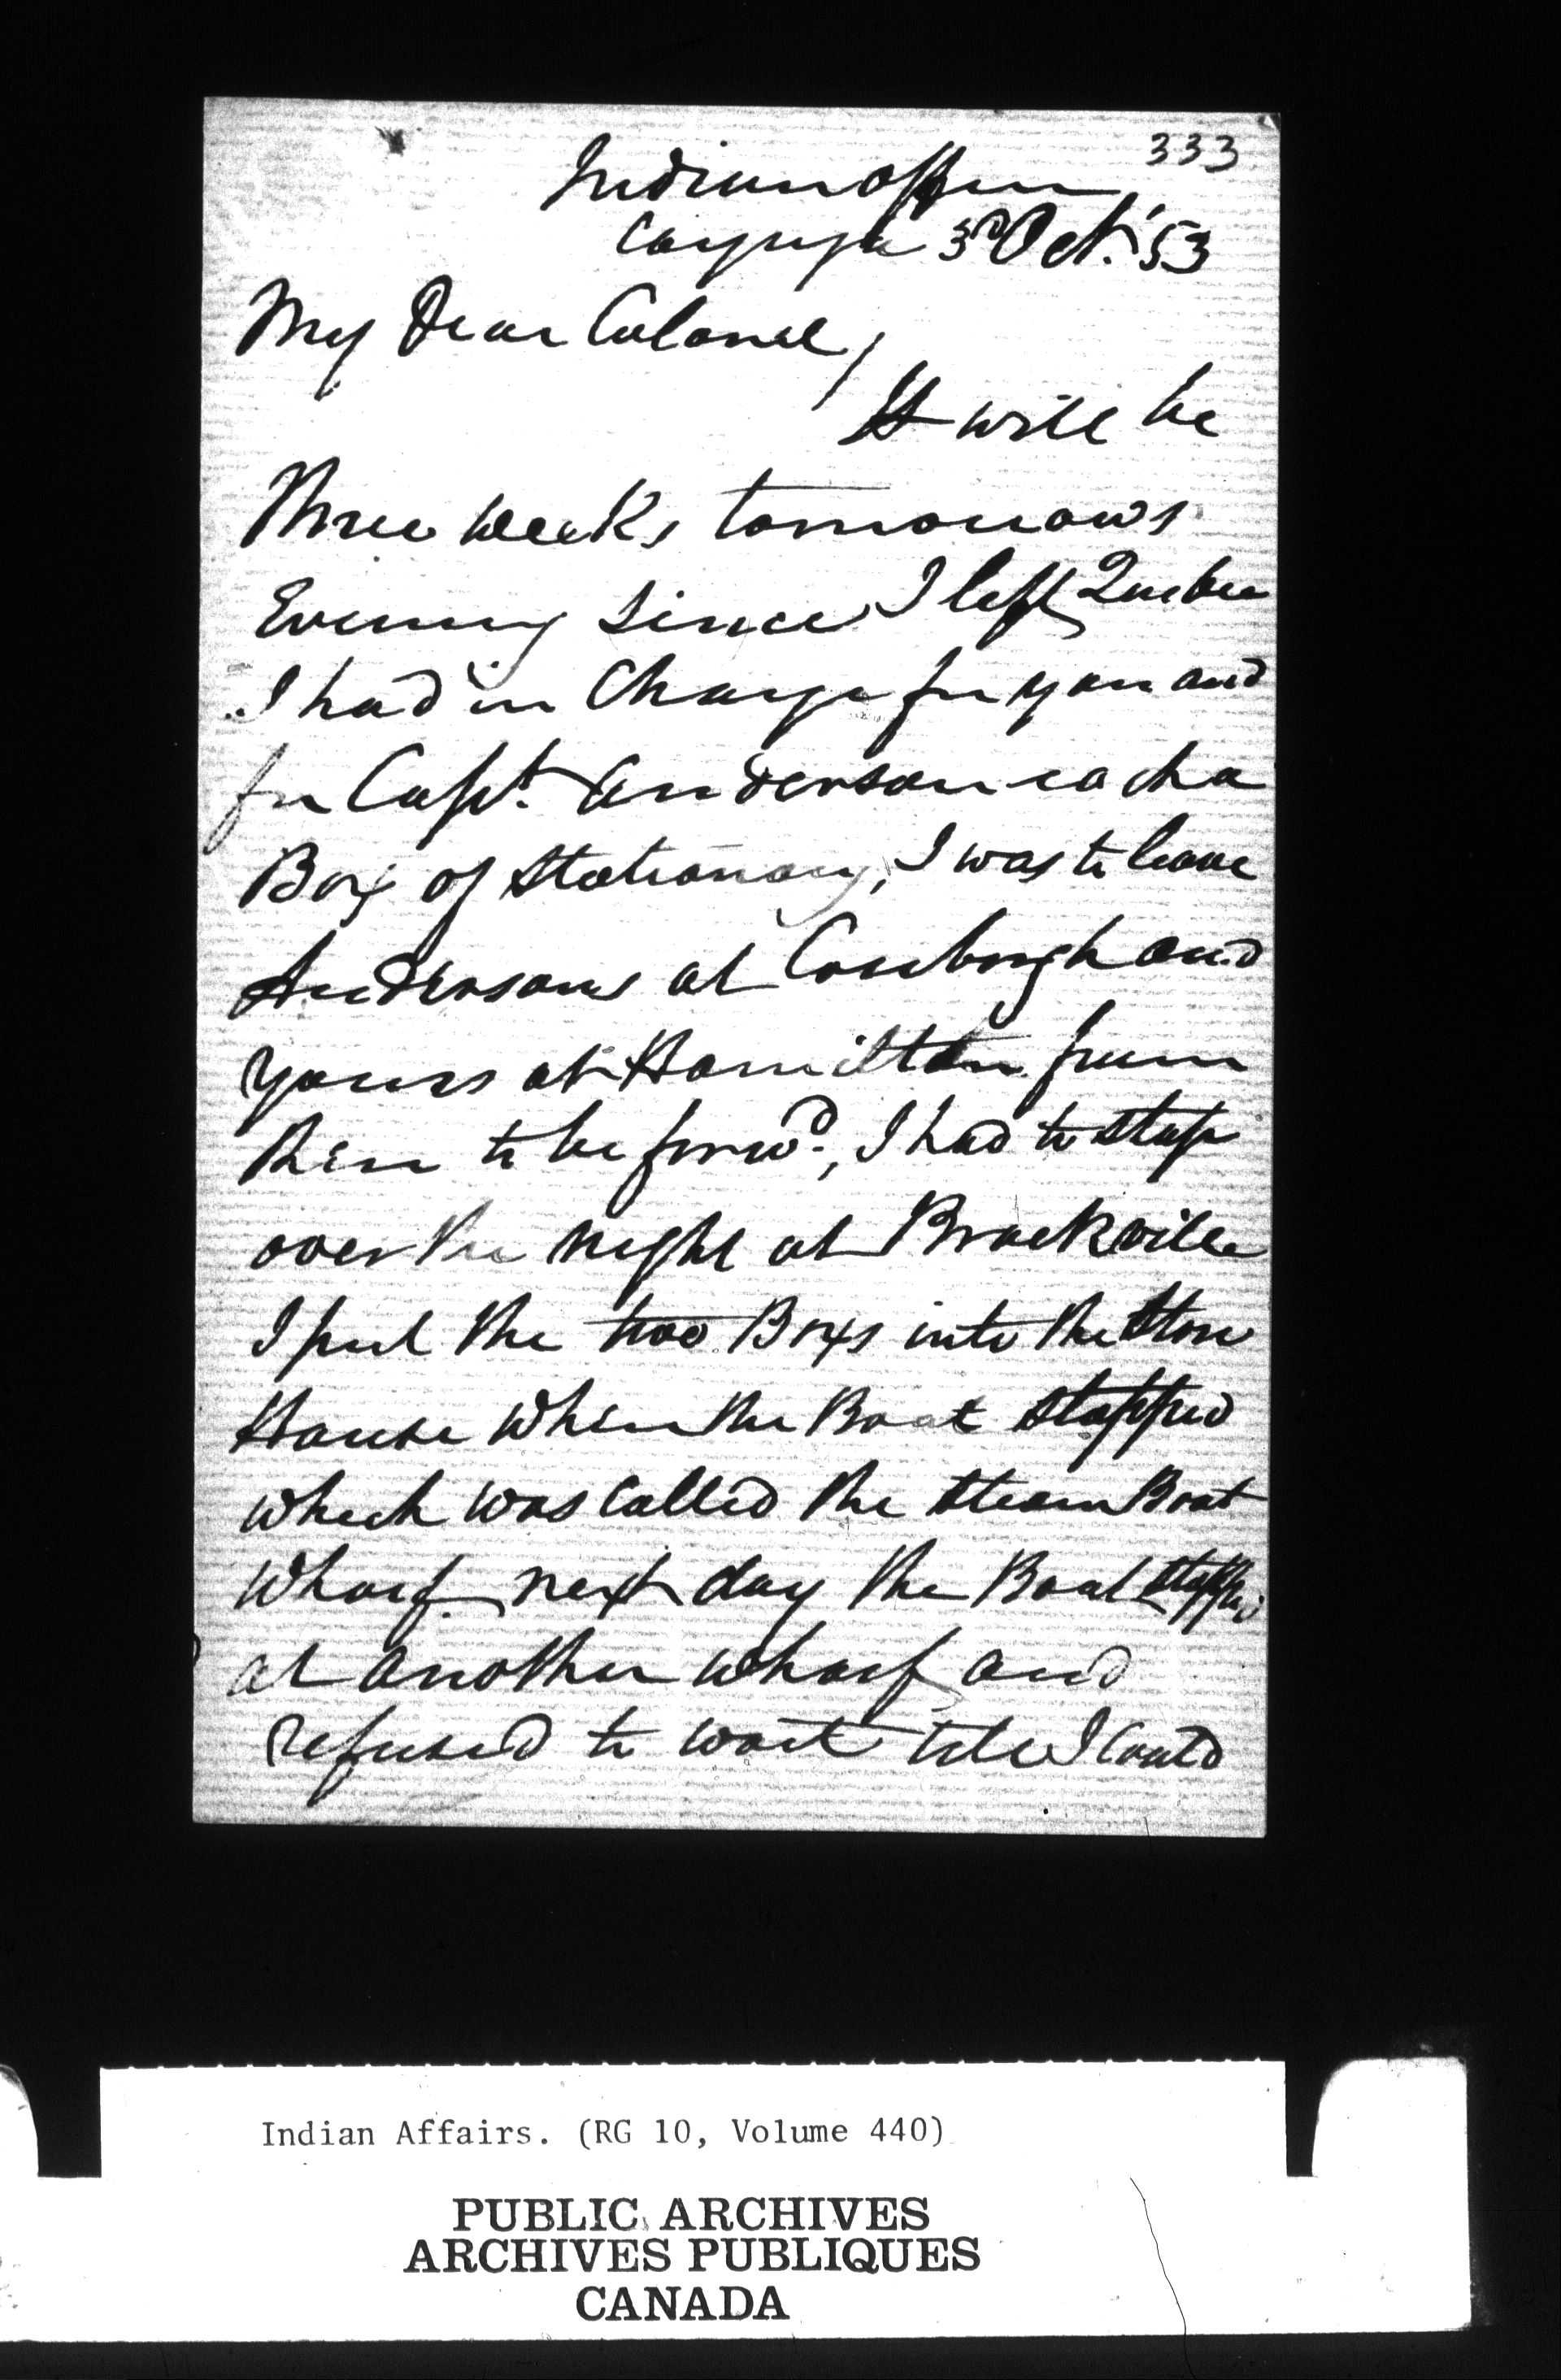 333
Indian Office
Cayuga 3rd Oct. '53
My Dear Colonel,
It will be
Three weeks tomorrows
Evening since I left Quebec
I had in Charge for you and
for Capt. Anderson each a
Box of Stationary, I was to leave
Andersons at Coubourgh and
yours at Hamilton from
there to be forwd., I had to stop
over the night at Brockville
I put the two Boxs into the Store
House when the Boat stopped
which was called the Steam Boat
Wharf. next day the Boat stopped
at another wharf and
refused to wait till I could
Indian Affairs. (RG 10, Volume 440)
PUBLIC ARCHIVES
ARCHIVES PUBLIQUES
CANADA